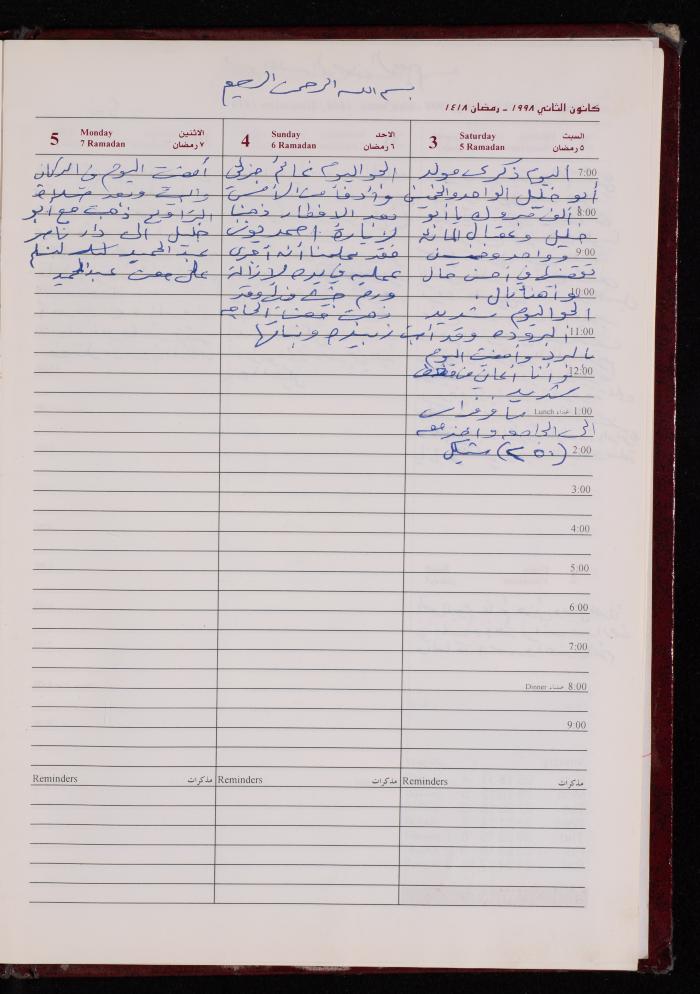 بسم الله الرحمن الرحيم
كانون الثاني ١٩٩٨ - رمضان ١٤١٨
3 Saturday السبت
5 Ramadan ٥ رمضان
7:00 اليوم ذكرى مولد
أبو خليل الواحد والخمسين
8:00 ألف مبروك يا أبو
خليل وعقبال المائة
9:00 وواحد وخمسين
في أحسن حال
10:00 وأهنأ بال.
الجو اليوم شديد
11:00 البرودة وقد
بالبرد وأمضت اليوم
12:00 وأنا أعاني من
شديد
1:00 Lunch غداء سافر فراس
الى الجامعه وأخذ معه
2:00 (٢٥٠) شيكل
3:00
4:00
5:00
6:00
7:00
8:00 عشاء Dinner
9:00
Reminders مذكرات
4 Sunday الاحد
6 Ramadan ٦ رمضان
الجو اليوم غائم جزئي
وأدفأ من الأمس
بعد الافطار ذهبنا
لزيارة احمد يونس
فقد علمنا أنه أجرى
عملية في يده لإزالة
ورم وقد
ذهبت الحاجه
زبيده وبناتها
Reminders مذكرات
5 Monday الاثنين
7 Ramadan ٧ رمضان
أمضيت اليوم في الدكان
والبيت وبعد صلاة
التراويح ذهبت مع أبو
خليل الى دار ناصر
عبد الحميد لنسلم
على عبد الحميد
Reminders مذكرات